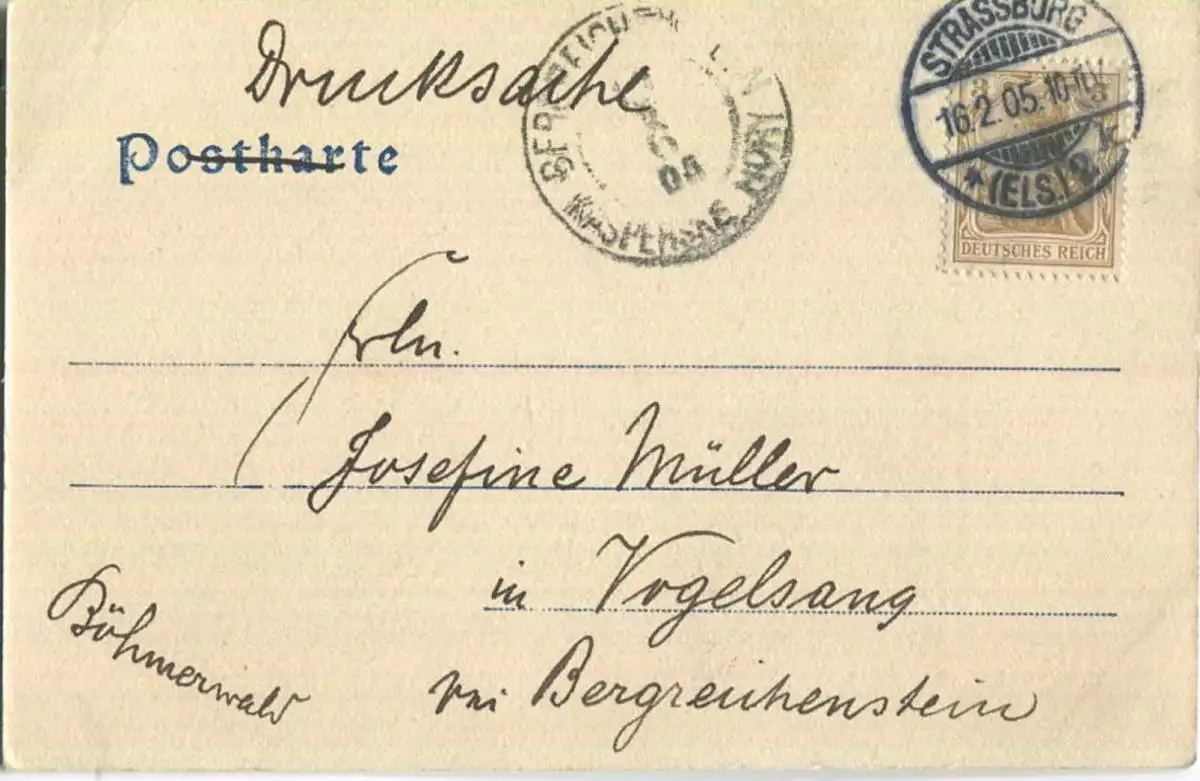 Drucksache
Postkarte
STRASSBURG
16.2.05.10-11V.
* (ELS.) 2. k
3 3
DEUTSCHES REICH
KAŠPERSKÉ HORY
Frln.
Josefine Müller
in Vogelsang
bei Bergreichenstein
Böhmerwald